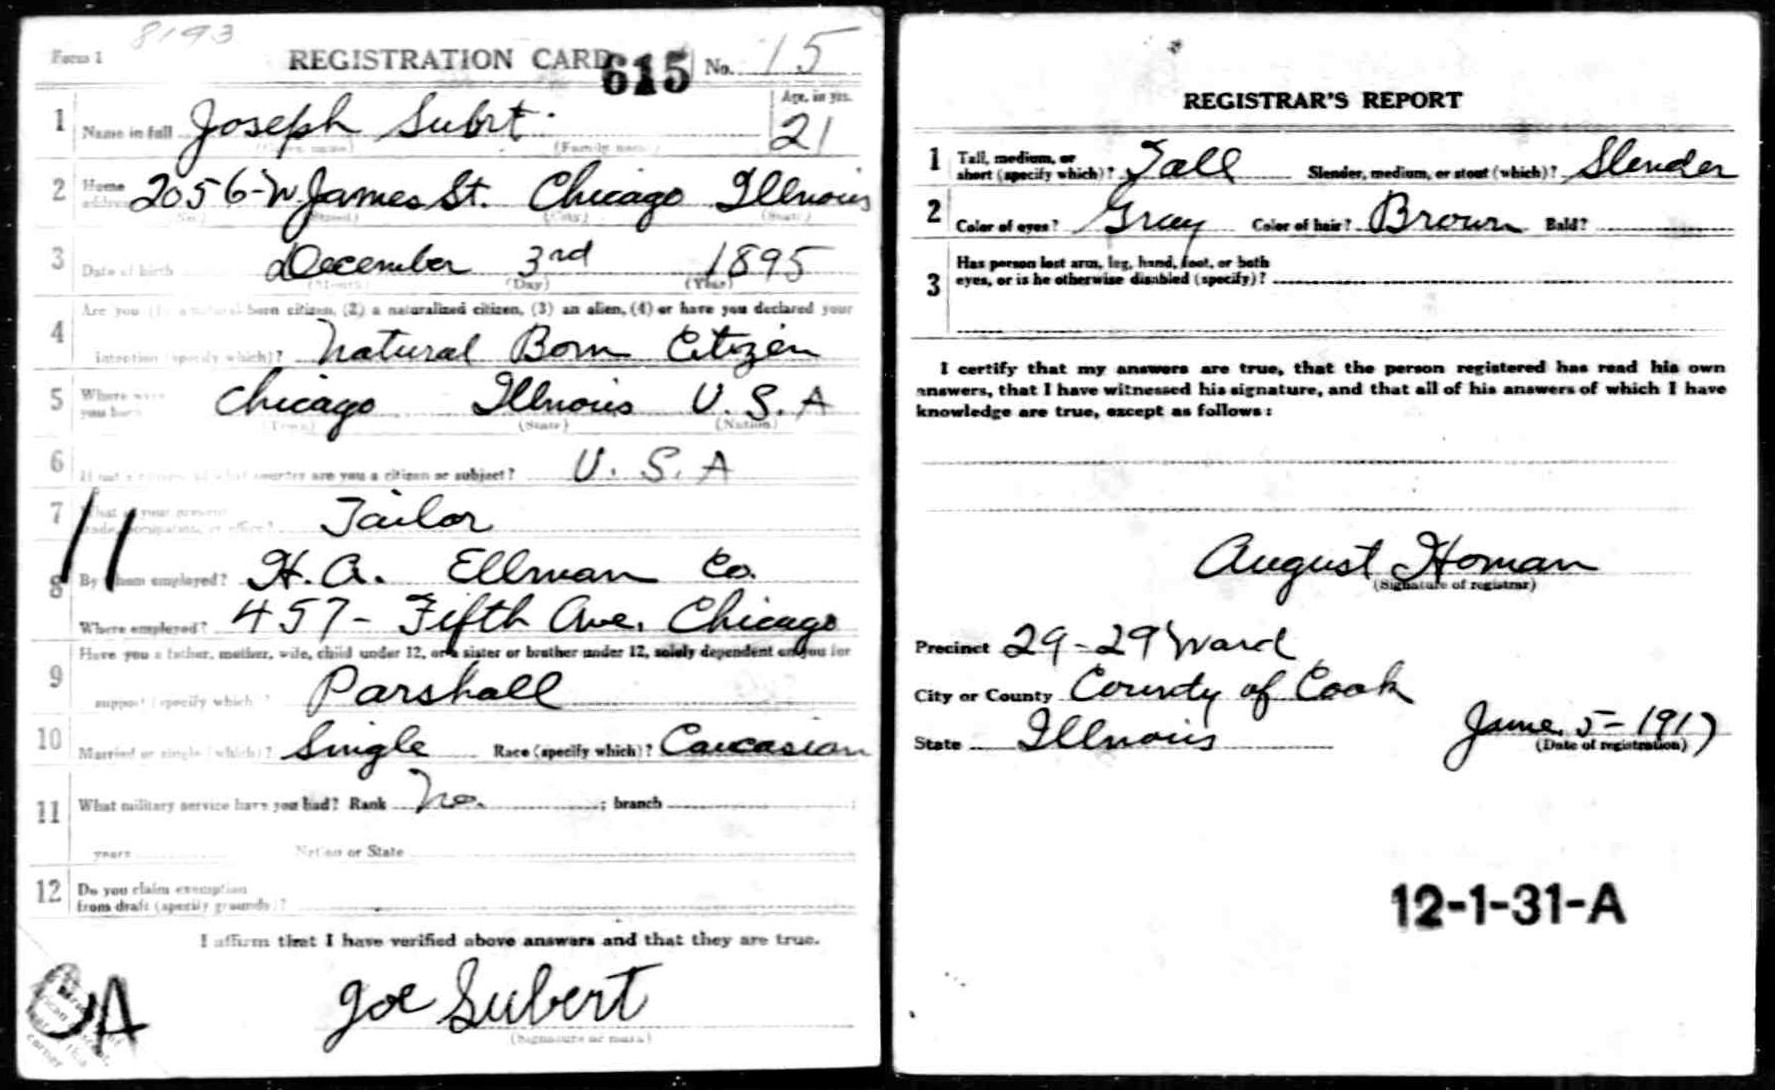 8193
Form 1 REGISTRATION CARD 615 No. 15
1 Name in full Joseph Subrt. Age, in yrs. 21
(Given name) (Family name)
2 Home address 2056-W. James St. Chicago Illinois
(No.) (Street) (City) (State)
3 Date of birth December 3rd 1895
(Month) (Day) (Year)
4 Are you (1) a natural born citizen, (2) a naturalized citizen, (3) an alien, (4) or have you declared your
intention (specify which)? Natural Born Citizen
5 Where were you born Chicago Illinois U.S.A
(Town) (State) (Nation)
6 If not a citizen, of what country are you a citizen or subject? U.S.A
7 What is your present
trade, occupation, or office? Tailor
11
8 By whom employed? H.A. Ellman Co.
Where employed? 457- Fifth Ave. Chicago
9 Have you a father, mother, wife, child under 12, or a sister or brother under 12, solely dependent on you for
support (specify which)? Parshall
10 Married or single (which)? Single Race (specify which)? Caucasian
11 What military service have you had? Rank No. ; branch ;
years Nation or State
12 Do you claim exemption
from draft (specify grounds)?
I affirm that I have verified above answers and that they are true.
Joe Subert
(Signature or mark)
corner
REGISTRAR'S REPORT
1 Tall, medium, or
short (specify which)? Tall Slender, medium, or stout (which)? Slender
2 Color of eyes? Gray Color of hair? Brown Bald?
3 Has person lost arm, leg, hand, foot, or both
eyes, or is he otherwise disabled (specify)?
I certify that my answers are true, that the person registered has read his own
answers, that I have witnessed his signature, and that all of his answers of which I have
knowledge are true, except as follows:
August Homan
(Signature of registrar)
Precinct 29-29 Ward
City or County County of Cook
State Illinois June 5-1917
(Date of registration)
12-1-31-A